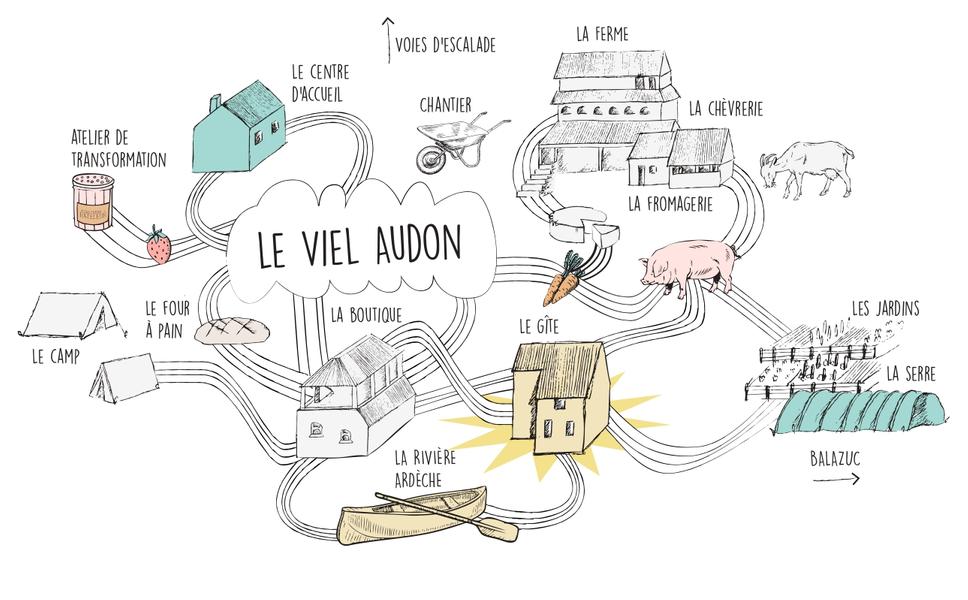 VOIES D'ESCALADE
LA FERME
LE CENTRE
D'ACCUEIL
CHANTIER
LA CHÈVRERIE
ATELIER DE
TRANSFORMATION
LA FROMAGERIE
LE VIEL AUDON
LE FOUR
À PAIN
LA BOUTIQUE
LE GÎTE
LES JARDINS
LE CAMP
LA SERRE
LA RIVIÈRE
ARDÈCHE
BALAZUC